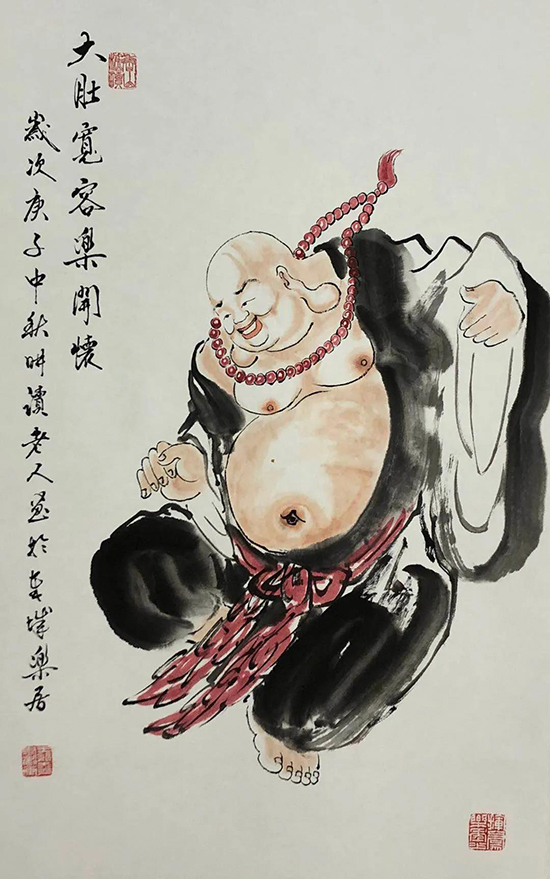 大肚寬容樂開懷
歲次庚子中秋耕讀老人畫於樂居